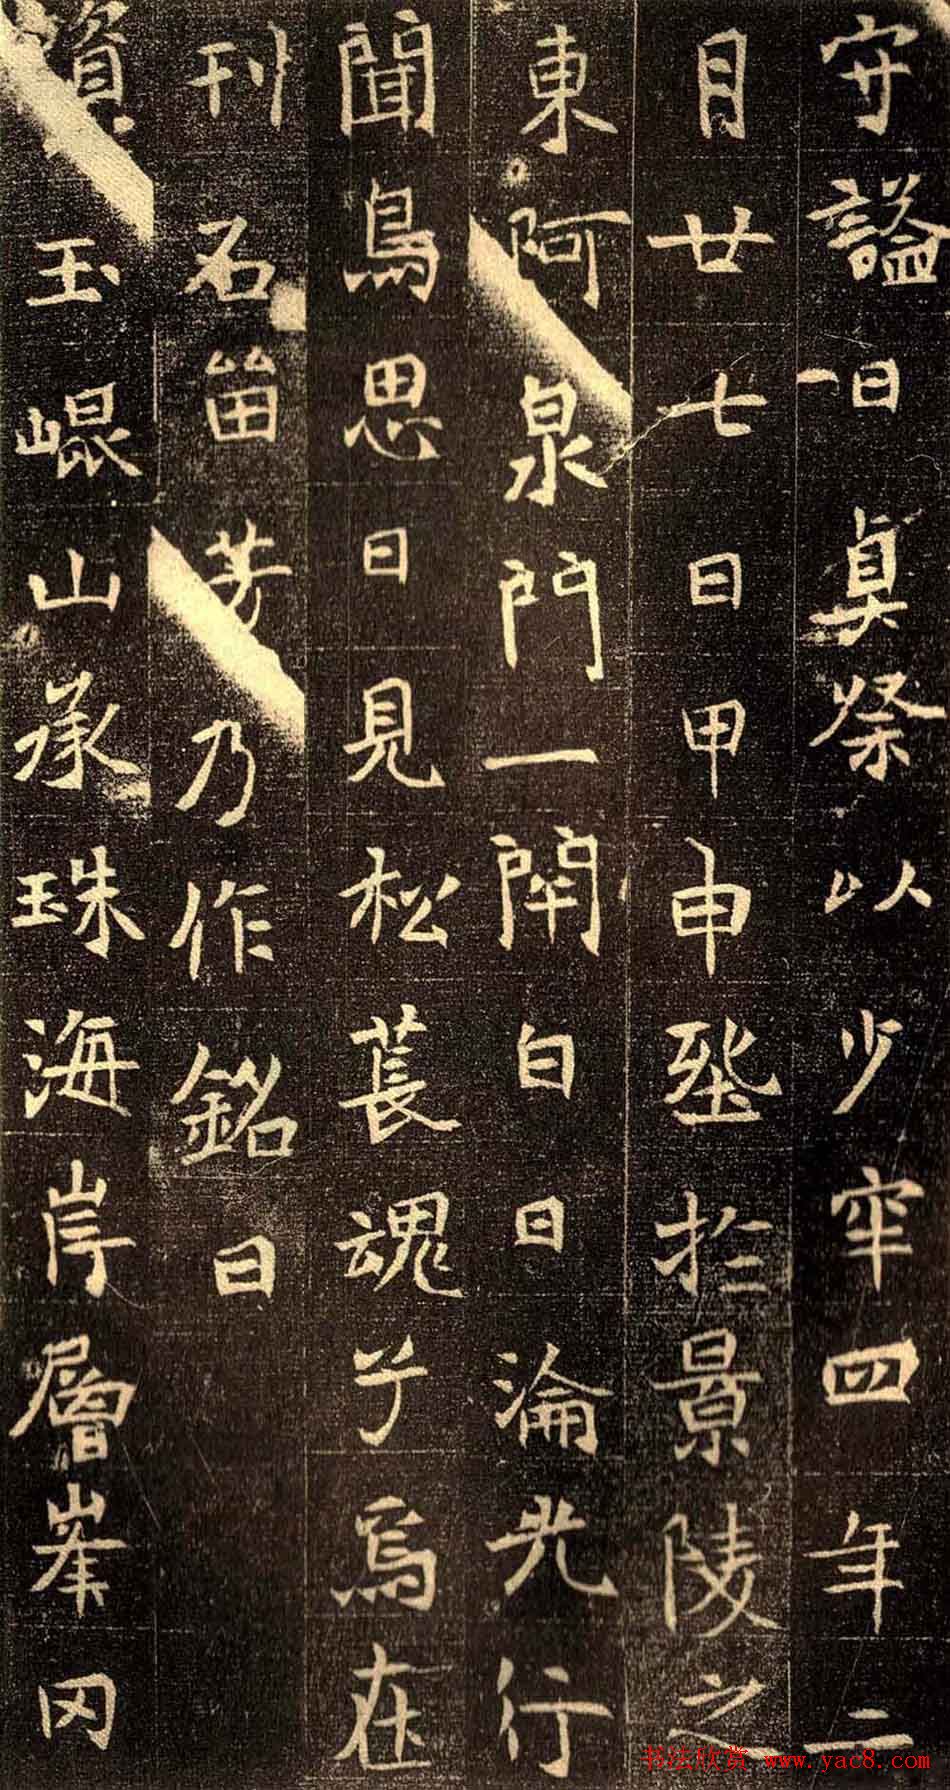 守諡曰貞祭以少牢四年二
月廿七日甲申於景陵之
東阿泉門一閇白日淪光行
聞鳥思日見松萇魂兮焉在
刊石留芳乃作銘曰
資玉崐山承珠海岸層峯冈
书法欣赏 www.yac8.com